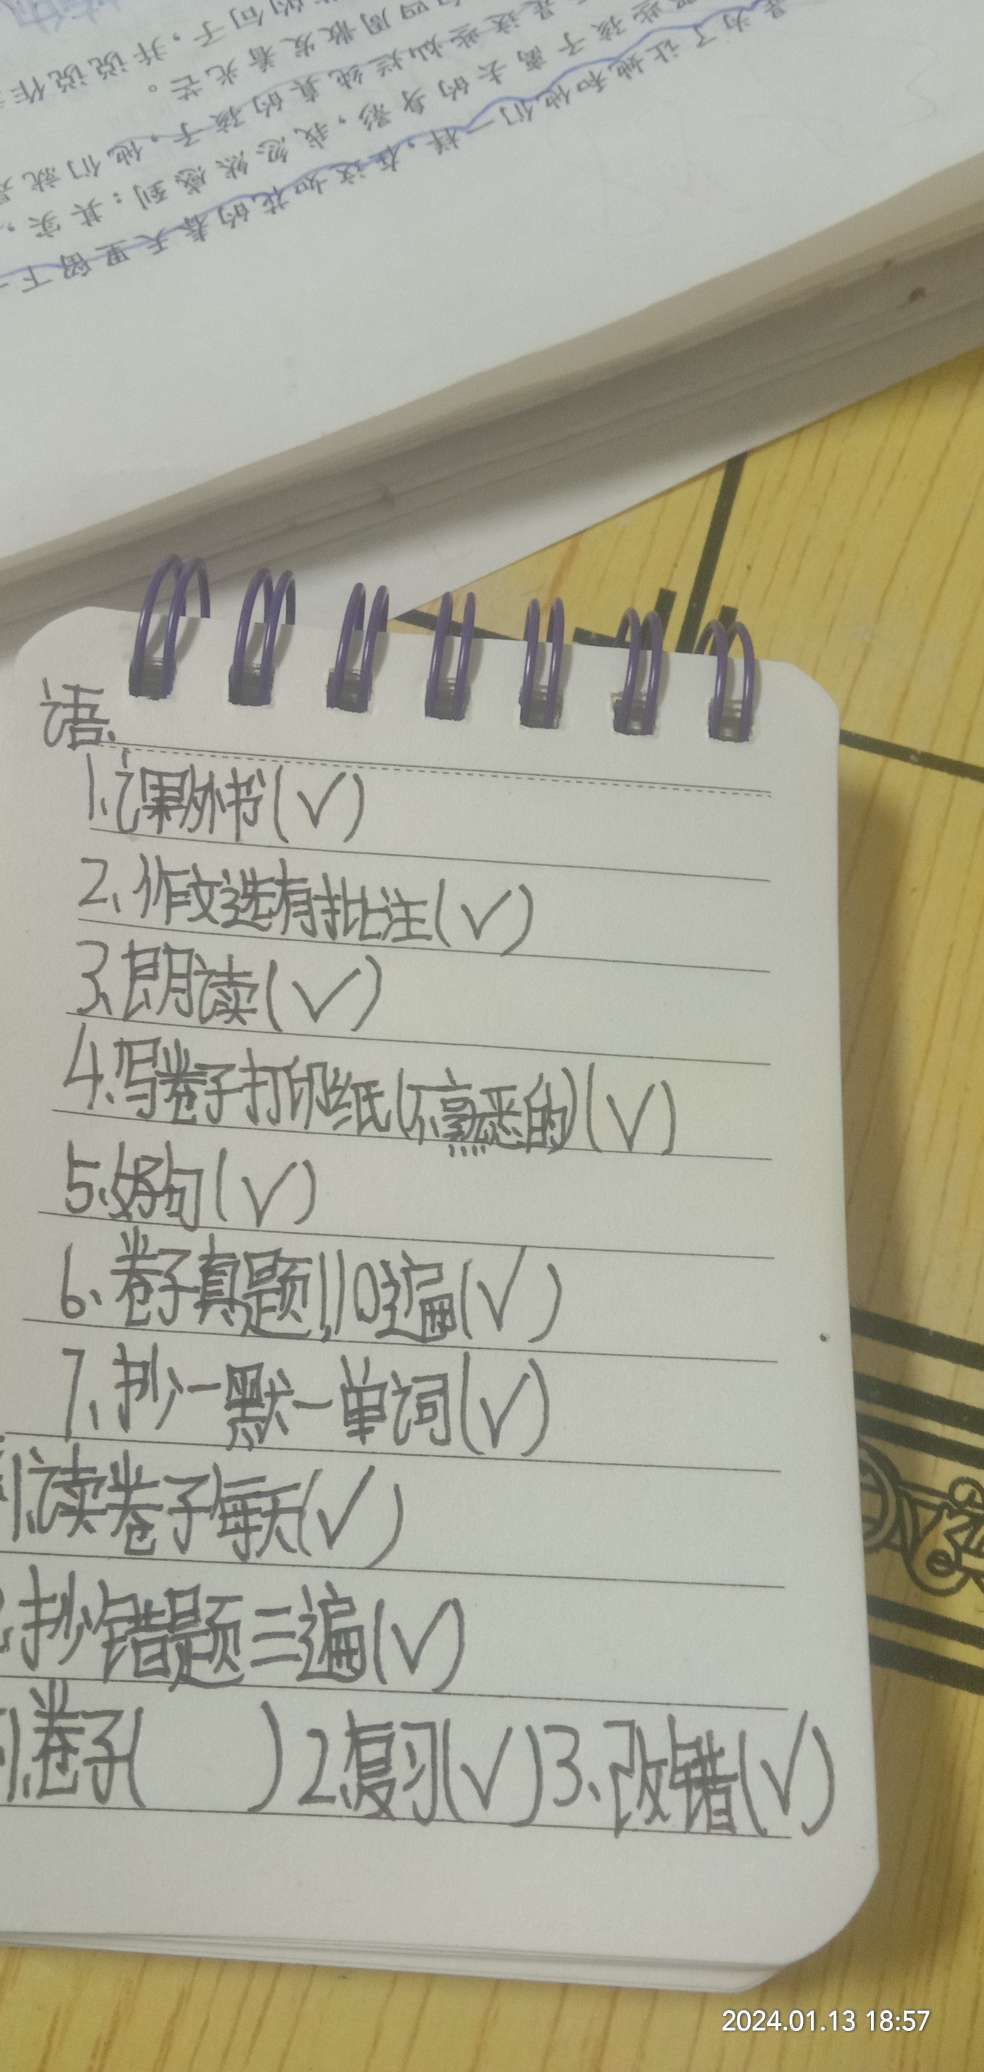 为了让她和他们一样，在这如花的春天里留下
孩子离去的身影，我忽然感到：其实，
是这些灿烂纯真的孩子，他们就是
四周散发着光芒。
的句子，并说说作
语
1.课外书(√)
2.作文选有批注(√)
3.朗读(√)
4.写卷子打印纸(不熟悉的)(√)
5.好句(√)
6.卷子真题,110遍(√)
7.抄一默一单词(√)
1.读卷子每天(√)
抄错题三遍(√)
1.卷子( ) 2.复习(√) 3.改错(√)
2024.01.13 18:57